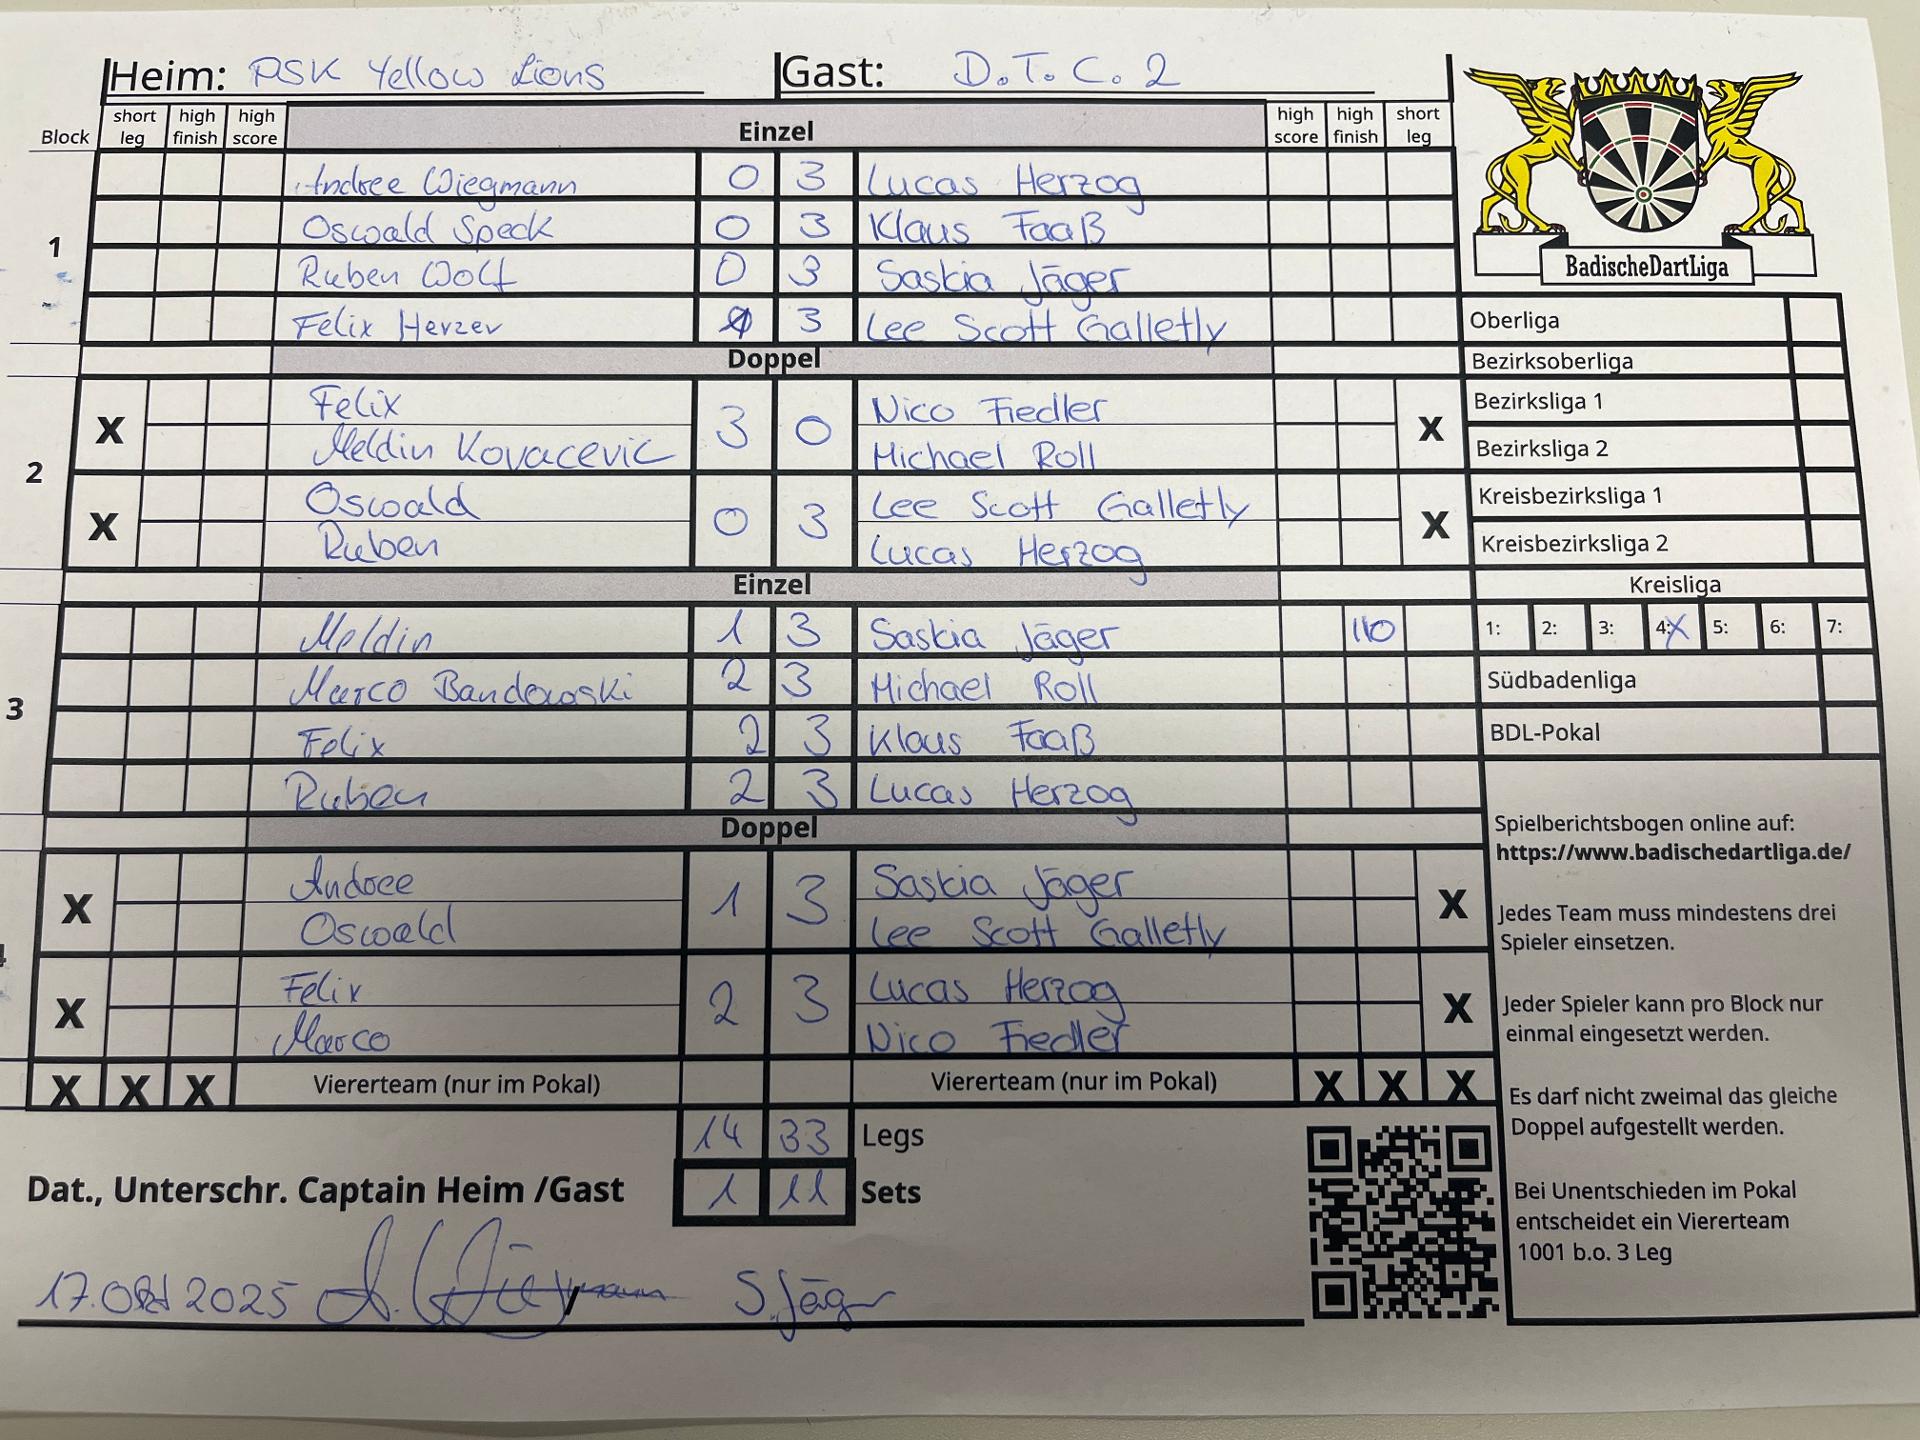 Heim: PSK Yellow Lions Gast: D.T.C. 2
Block short leg high finish high score Einzel high score high finish short leg
1
Andree Wiegmann 0 3 Lucas Herzog
Oswald Speck 0 3 Klaus Faaß
Ruben Wolf 0 3 Saskia Jäger
Felix Herzer 3 Lee Scott Galletly
Doppel
2
X Felix 3 0 Nico Fiedler X
Meldin Kovacevic Michael Roll
X Oswald 0 3 Lee Scott Galletly X
Ruben Lucas Herzog
Einzel
3
Meldin 1 3 Saskia Jäger 110
Marco Bandowski 2 3 Michael Roll
Felix 2 3 Klaus Faaß
Ruben 2 3 Lucas Herzog
Doppel
4
X Andree 1 3 Saskia Jäger X
Oswald Lee Scott Galletly
X Felix 2 3 Lucas Herzog X
Marco Nico Fiedler
X X X Viererteam (nur im Pokal) Viererteam (nur im Pokal) X X X
14 33 Legs
Dat., Unterschr. Captain Heim /Gast 1 11 Sets
17. Okt 2025 S. Jäger
BadischeDartLiga
Oberliga
Bezirksoberliga
Bezirksliga 1
Bezirksliga 2
Kreisbezirksliga 1
Kreisbezirksliga 2
Kreisliga
1: 2: 3: 4: X 5: 6: 7:
Südbadenliga
BDL-Pokal
Spielberichtsbogen online auf:
https://www.badischedartliga.de/
Jedes Team muss mindestens drei
Spieler einsetzen.
Jeder Spieler kann pro Block nur
einmal eingesetzt werden.
Es darf nicht zweimal das gleiche
Doppel aufgestellt werden.
Bei Unentschieden im Pokal
entscheidet ein Viererteam
1001 b.o. 3 Leg